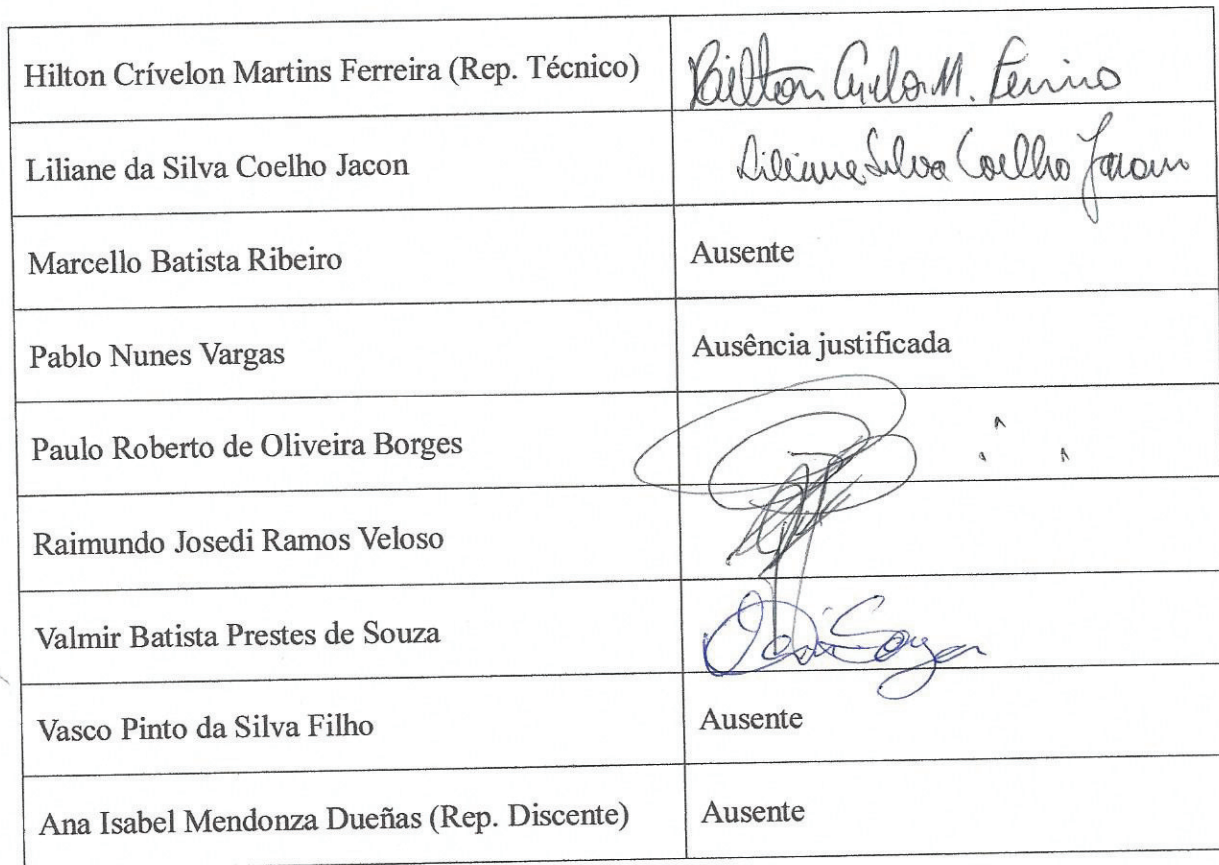 Hilton Crívelon Martins Ferreira (Rep. Técnico)
Liliane da Silva Coelho Jacon Liliane Silva Coelho Jacon
Marcello Batista Ribeiro Ausente
Pablo Nunes Vargas Ausência justificada
Paulo Roberto de Oliveira Borges
Raimundo Josedi Ramos Veloso
Valmir Batista Prestes de Souza
Vasco Pinto da Silva Filho Ausente
Ana Isabel Mendonza Dueñas (Rep. Discente) Ausente